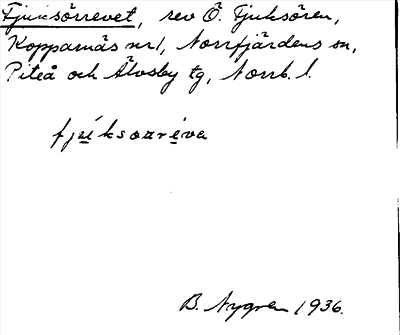 Fjuksörrevet, rev Ö. Fjuksören,
Kopparnäs nr 1, Norrfjärdens sn,
Piteå och Älvsby tg, Norrb. l.
fjúksorréva
B. Nygren 1936.